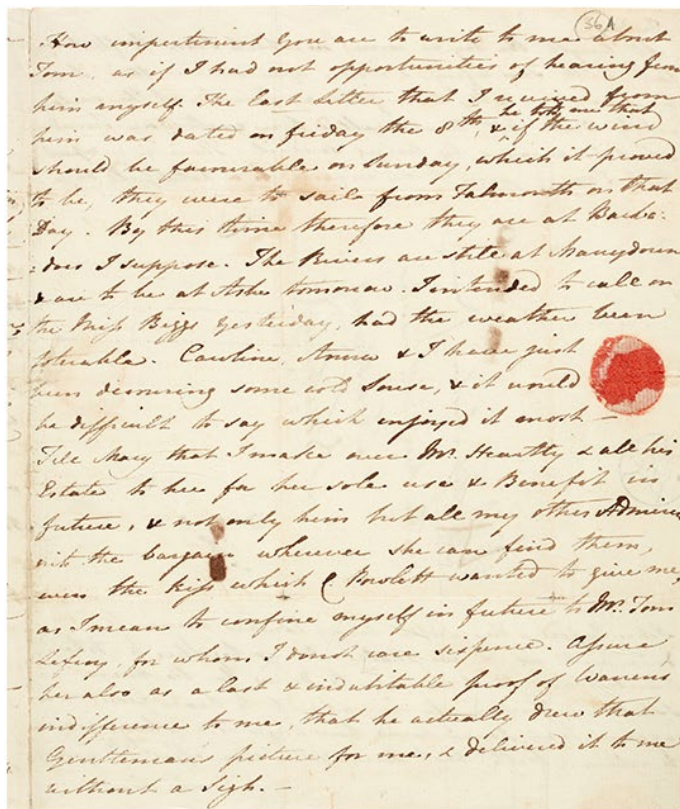 36A
How impertinent you are to write to me about
Tom, as if I had not opportunities of hearing from
him myself. The Last Letter that I received from
him was dated on Friday the 8th, he told me that
& if the wind
should be favourable on Sunday, which it proved
to be, they were to sail from Falmouth on that
Day. By this time therefore they are at Barba:
:does I suppose. The Rivers are still at Manydown
& are to be at Ashe tomorrow. I intended to call on
the Miss Biggs yesterday, had the weather been
tolerable. Caroline, Anna & I have just
been devouring some cold Souse, & it would
be difficult to say which enjoyed it most—
Tell Mary that I make over Mr. Heartley & all his
Estate to her for her sole use & Benefit in
future, & not only him but all my other Admirers
into the bargain wherever she can find them,
even the kiss which C. Powlett wanted to give me,
as I mean to confine myself in future to Mr. Tom
Lefroy, for whom I donot care sixpence. Assure
her also as a last & indubitable proof of Warrens
indifference to me, that he actually drew that
Gentleman's picture for me, & delivered it to me
without a Sigh.—